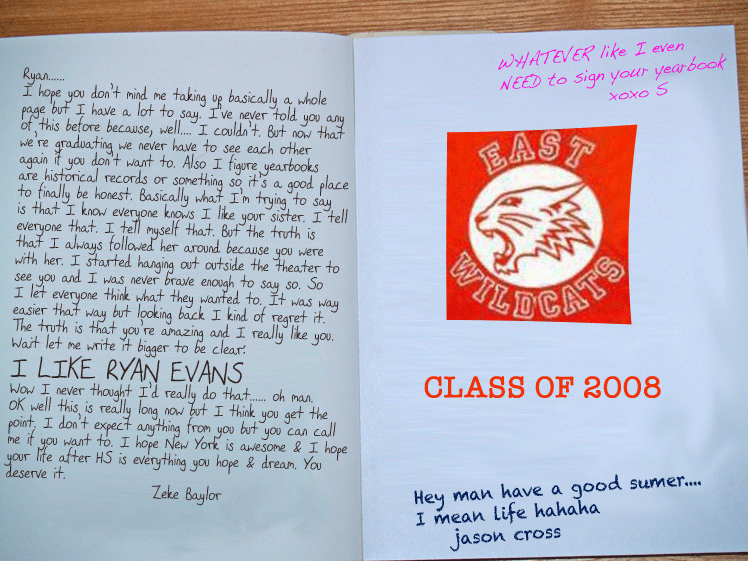 Ryan......
I hope you don't mind me taking up basically a whole
page but I have a lot to say. I've never told you any
of this before because, well.... I couldn't. But now that
we're graduating we never have to see each other
again if you don't want to. Also I figure yearbooks
are historical records or something so it's a good place
to finally be honest. Basically what I'm trying to say
is that I know everyone knows I like your sister. I tell
everyone that. I tell myself that. But the truth is
that I always followed her around because you were
with her. I started hanging out outside the theater to
see you and I was never brave enough to say so. So
I let everyone think what they wanted to. It was way
easier that way but looking back I kind of regret it.
The truth is that you're amazing and I really like you.
Wait let me write it bigger to be clear:
I LIKE RYAN EVANS
Wow I never thought I'd really do that...... oh man.
OK well this is really long now but I think you get the
point. I don't expect anything from you but you can call
me if you want to. I hope New York is awesome & I hope
your life after HS is everything you hope & dream. You
deserve it.
Zeke Baylor
WHATEVER like I even
NEED to sign your yearbook
xoxo S
EAST
WILDCATS
CLASS OF 2008
Hey man have a good sumer....
I mean life hahaha
jason cross